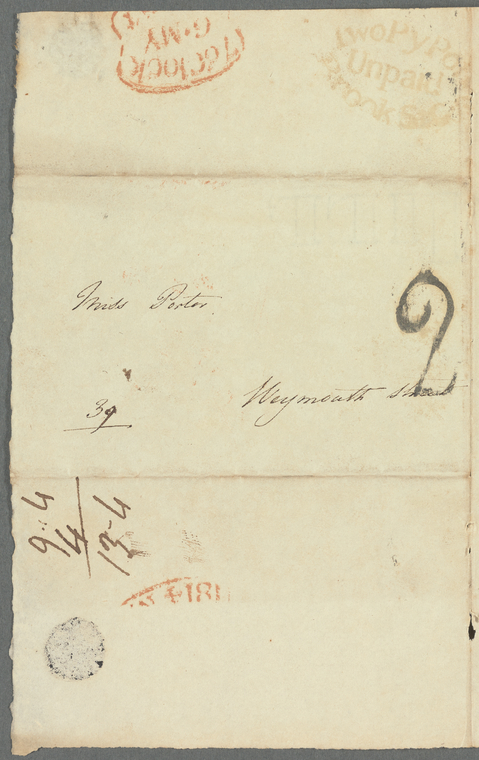 7oClock
G·MY
Two Py Po
Unpaid
Brook St
Miss Porter
2
39
Weymouth Street
9 : 4
4
13 - 4
181